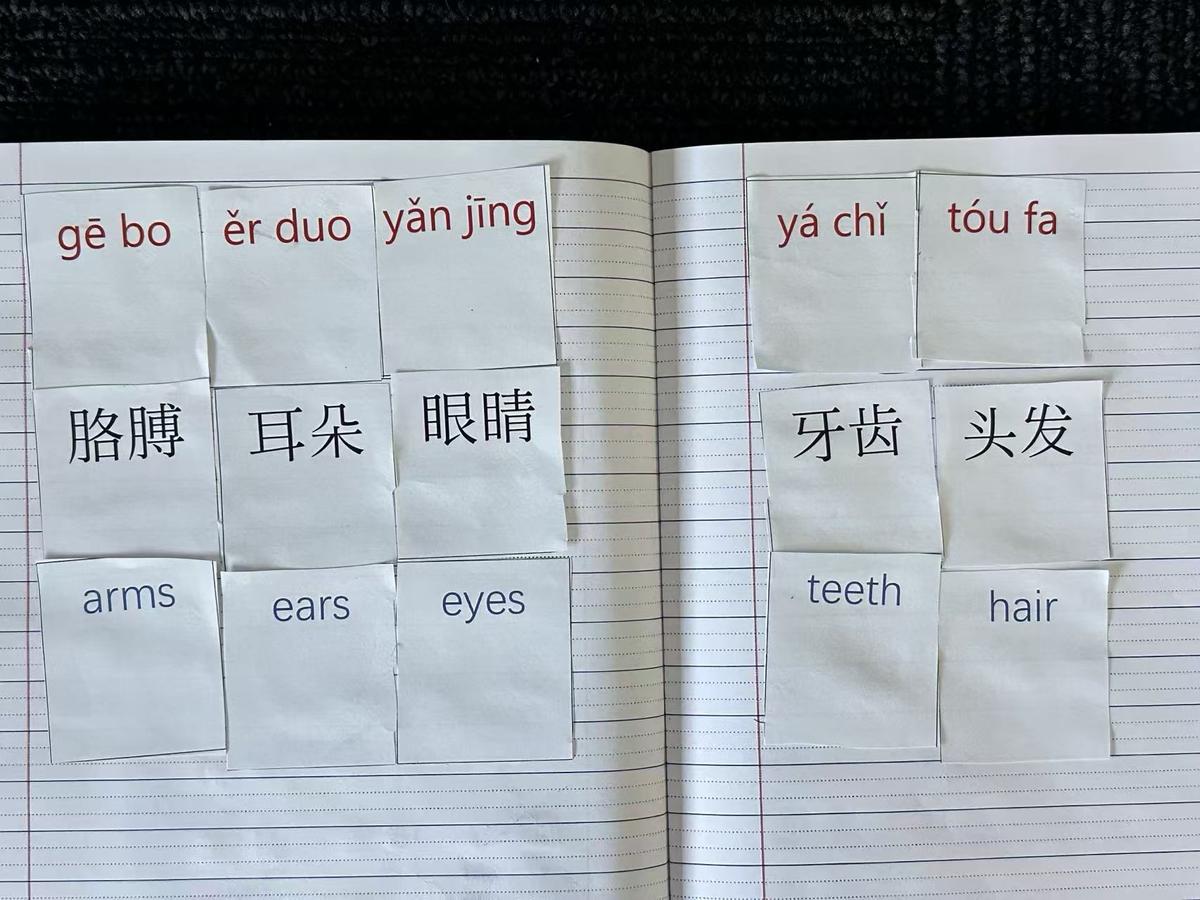 gē bo ěr duo yǎn jīng yá chǐ tóu fa
胳膊 耳朵 眼睛 牙齿 头发
arms ears eyes teeth hair